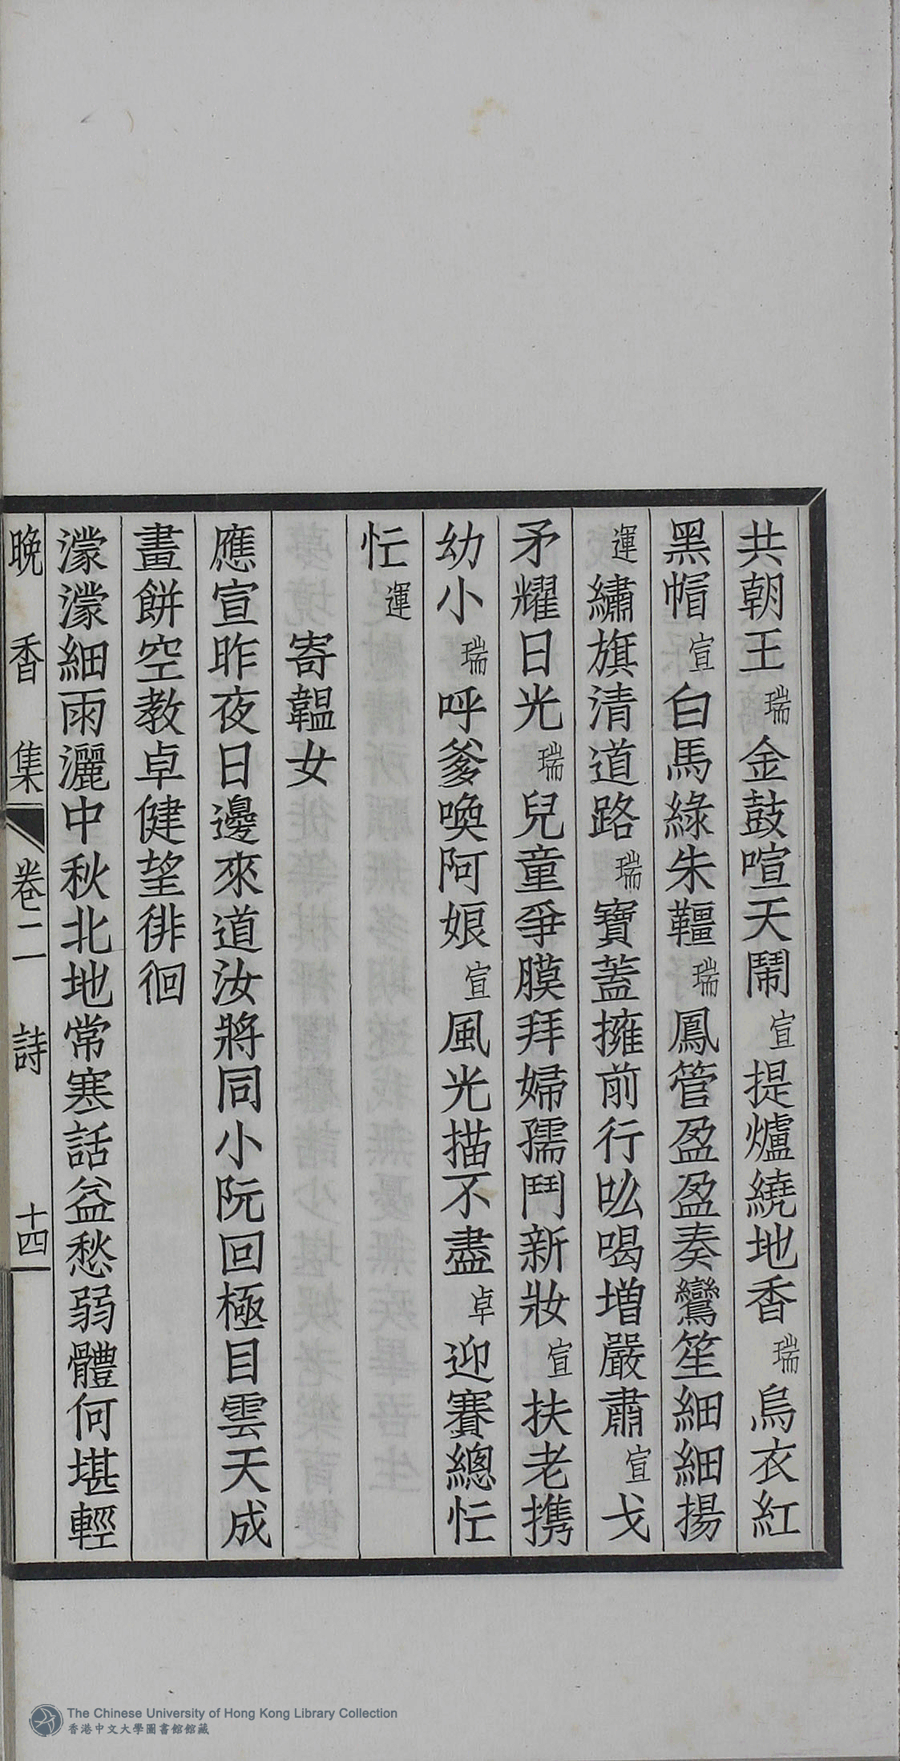 共朝王瑞金鼓喧天鬧宣提爐繞地香瑞烏衣紅
黑帽宣白馬綠朱韁瑞鳳管盈盈奏鸞笙細細揚
運繡旗清道路瑞寶蓋擁前行吆喝增嚴肅宣戈
矛耀日光瑞兒童爭膜拜婦孺鬥新妝宣扶老攜
幼小瑞呼爹喚阿娘宣風光描不盡卓迎賽總忙
忙運
寄韞女
應宣昨夜日邊來道汝將同小阮回極目雲天成
畫餅空教卓健望徘徊
濛濛細雨灑中秋北地常寒話益愁弱體何堪輕
晚香集 卷二 詩 十四
The Chinese University of Hong Kong Library Collection
香港中文大學圖書館館藏